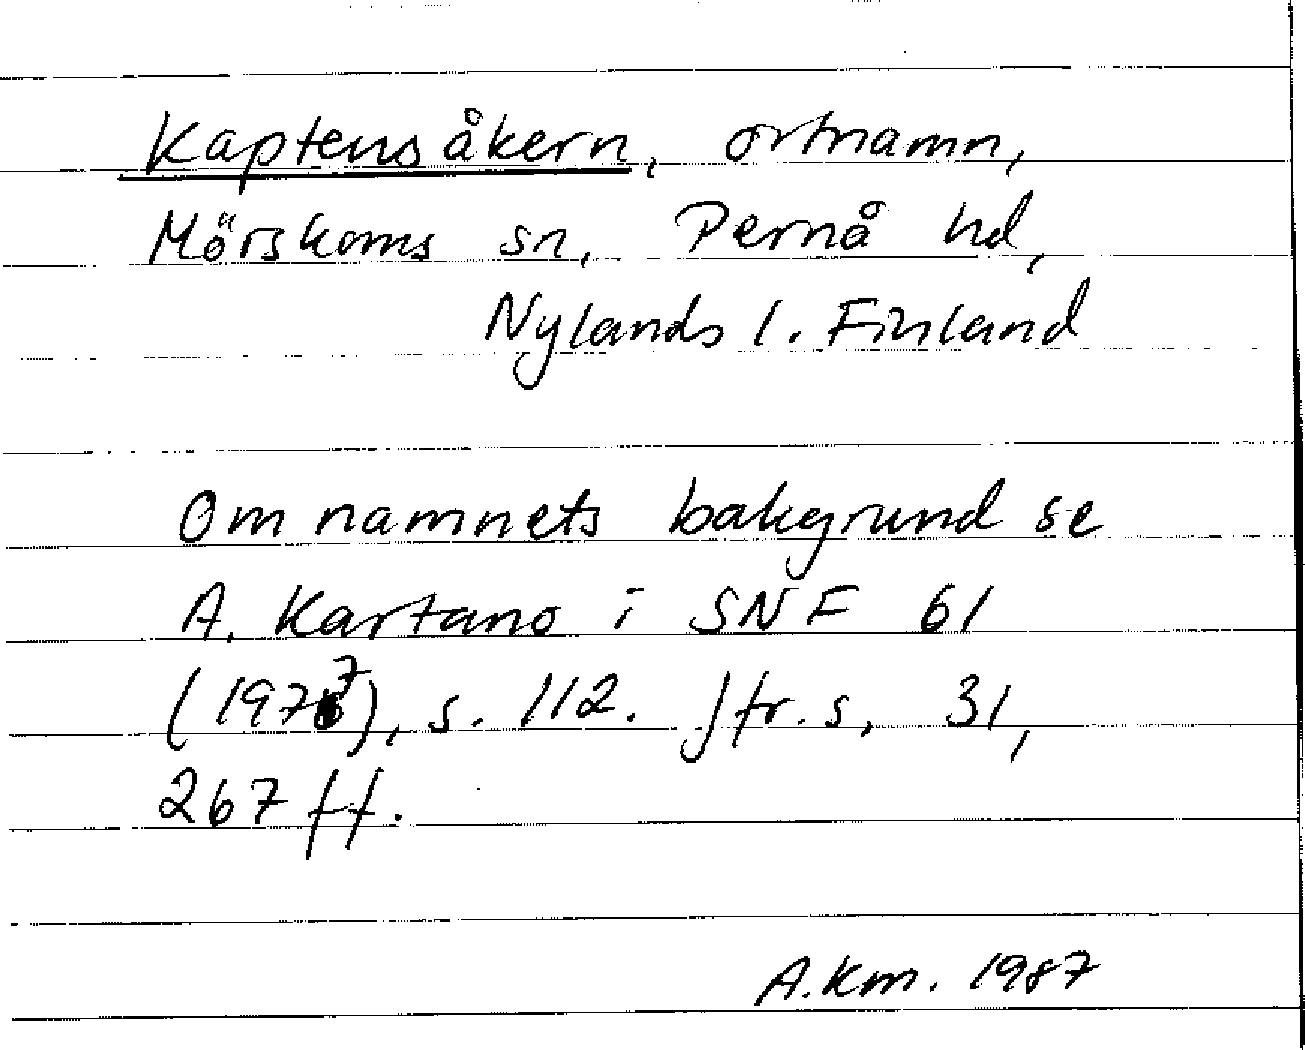 Kaptensåkern, ortnamn,
Mörskoms sn, Pernå hd,
Nylands l. Finland
Om namnets bakgrund se
A. Kartano i SNF 61
(1977), s. 112. Jfr. s, 31,
267 ff.
A.Km. 1987